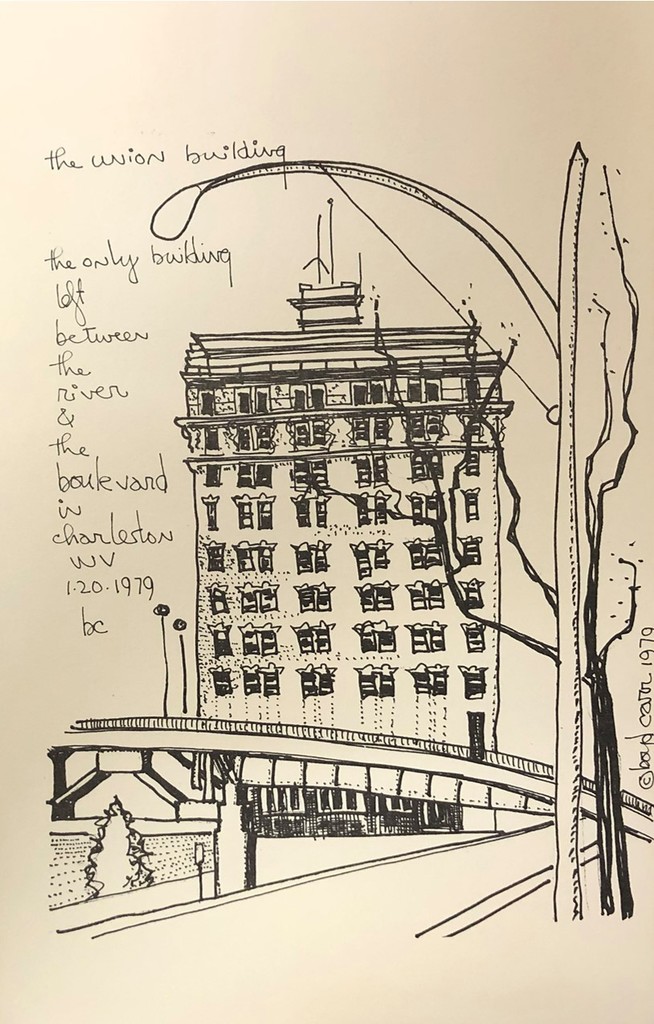 the union building
the only building
left
between
the
river
&
the
boulevard
in
charleston
WV
1·20·1979
bc
© bob carr 1979